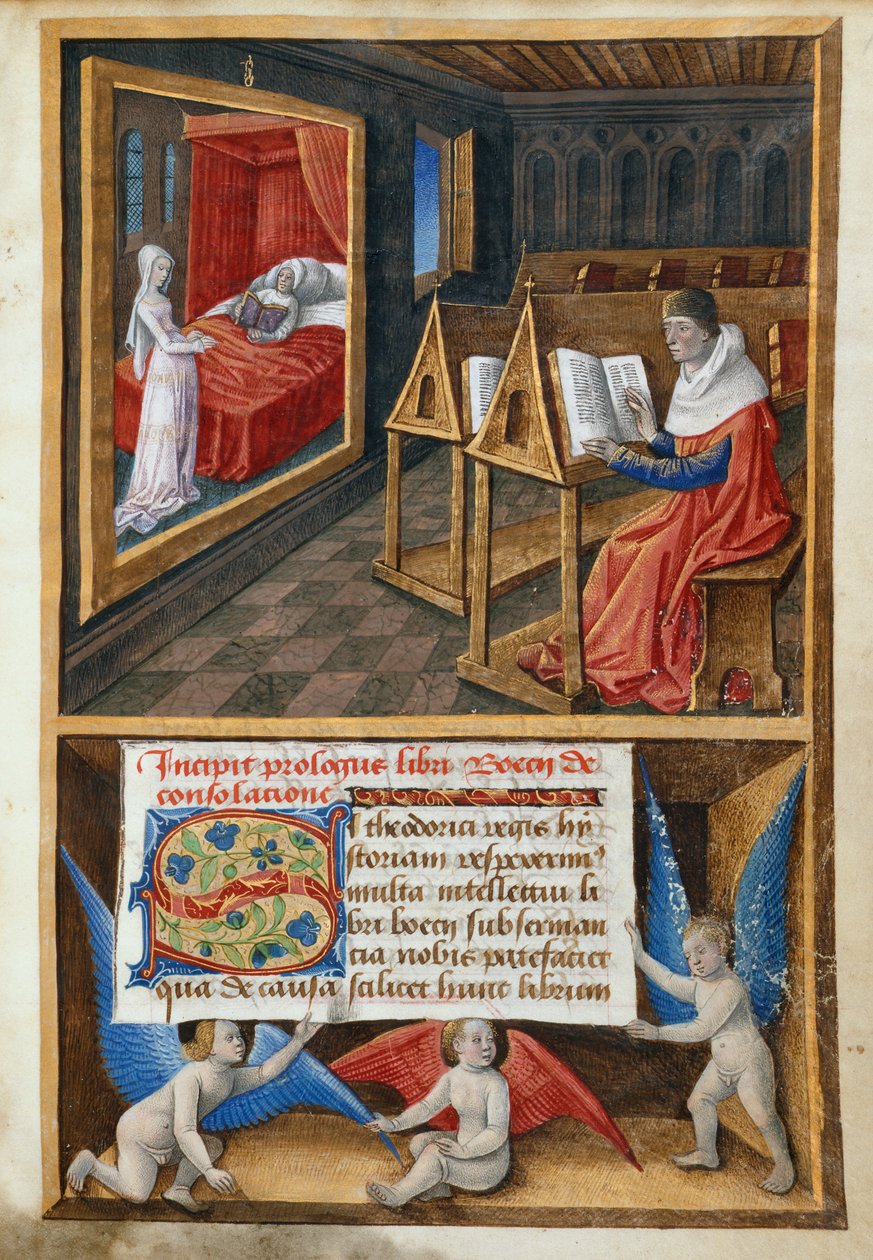 Incipit prologus libri Boecij de
consolacione
SI theodorici regis hy
storiam respexerimꝰ
multa intellectui li
bri boecij subserman
cia nobis patefaciet
qua de causa scilicet hunc librum